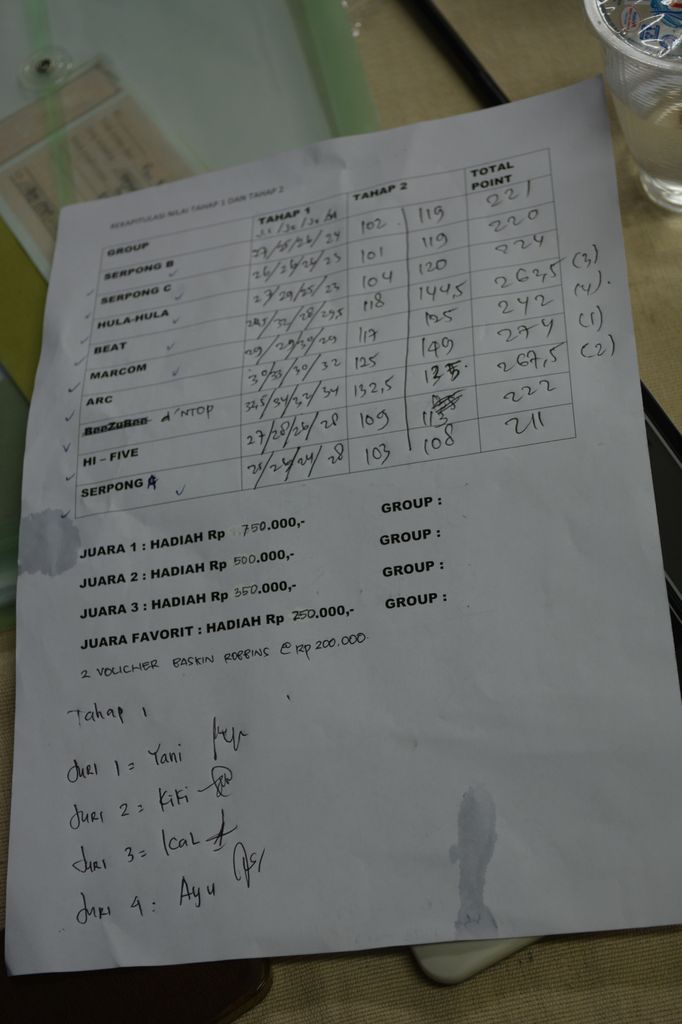 REKAPITULASI NILAI TAHAP 1 DAN TAHAP 2
GROUP TAHAP 1 TAHAP 2 TOTAL POINT
SERPONG B 27/25/26/24 102 119 221
SERPONG C 101 119 220
HULA-HULA 27/29/25/23 104 120 224
BEAT 118 144,5 262,5 (3)
MARCOM 29/29/30/29 117 125 242 (4).
ARC 30/33/30/32 125 149 274 (1)
BeeZuBee d'NTOP 32,5/34/32/34 132,5 135. 267,5 (2)
HI – FIVE 27/28/26/28 109 113 222
SERPONG A 103 108 211
JUARA 1 : HADIAH Rp 750.000,- GROUP :
JUARA 2 : HADIAH Rp 500.000,- GROUP :
JUARA 3 : HADIAH Rp 350.000,- GROUP :
JUARA FAVORIT : HADIAH Rp 250.000,- GROUP :
2 VOUCHER BASKIN ROBBINS @ Rp 200.000.
Tahap 1
JURI 1 = Yani
JURI 2 = Kiki
JURI 3 = Ical
JURI 4 : Ayu